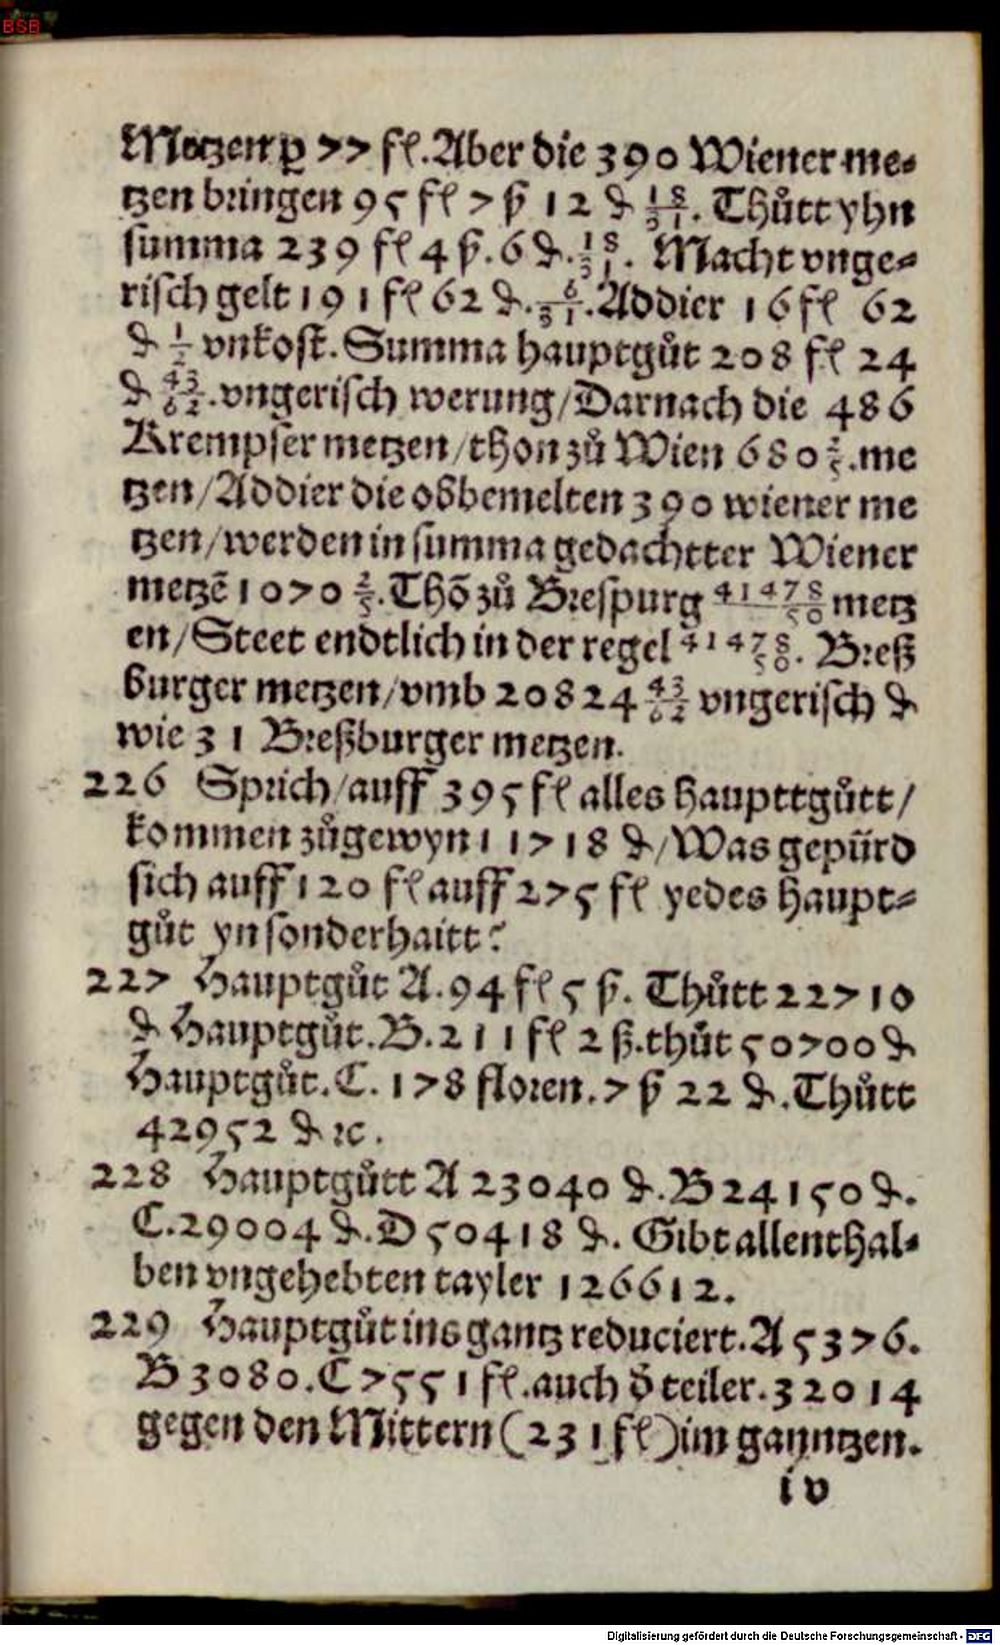 BSB
Metzen ꝑ 77 fl. Aber die 390 Wiener me⸗
tzen bringen 95 fl 7 ß 12 ₰ 18/31. Thůtt yhn
summa 239 fl 4 ß. 6 ₰. 18/31. Macht vnge⸗
risch gelt 191 fl 62 ₰. 6/31. Addier 16 fl 62
₰ 1/2 vnkost. Summa hauptgůt 208 fl 24
₰ 43/62. vngerisch werung/Darnach die 486
Krempser metzen/thon zů Wien 680 2/5. me
tzen/Addier die obbemelten 390 wiener me
tzen/werden in summa gedachtter Wiener
metzē 1070 2/5. Thō zů Brespurg 41478/50 metz
en/Steet endtlich in der regel 41478/50. Breß
burger metzen/vmb 20824 43/62 vngerisch ₰
wie 31 Breßburger metzen.
226 Sprich/auff 395 fl alles haupttgůtt/
kommen zůgewyn 11718 ₰/Was gepürd
sich auff 120 fl auff 275 fl yedes haupt⸗
gůt yn sonderhaitt?
227 Hauptgůt A. 94 fl 5 ß. Thůtt 22710
₰ Hauptgůt. B. 211 fl 2 ß. thůt 50700 ₰
Hauptgůt. C. 178 floren. 7 ß 22 ₰. Thůtt
42952 ₰ ꝛc.
228 Hauptgůtt A 23040 ₰. B 24150 ₰.
C. 29004 ₰. D 50418 ₰. Gibt allenthal⸗
ben vngehebten tayler 126612.
229 Hauptgůt ins gantz reduciert. A 5376.
B 3080. C 7551 fl. auch ð teiler. 32014
gegen den Mittern (231 fl) im gayntzen.
iv
Digitalisierung gefördert durch die Deutsche Forschungsgemeinschaft - DFG